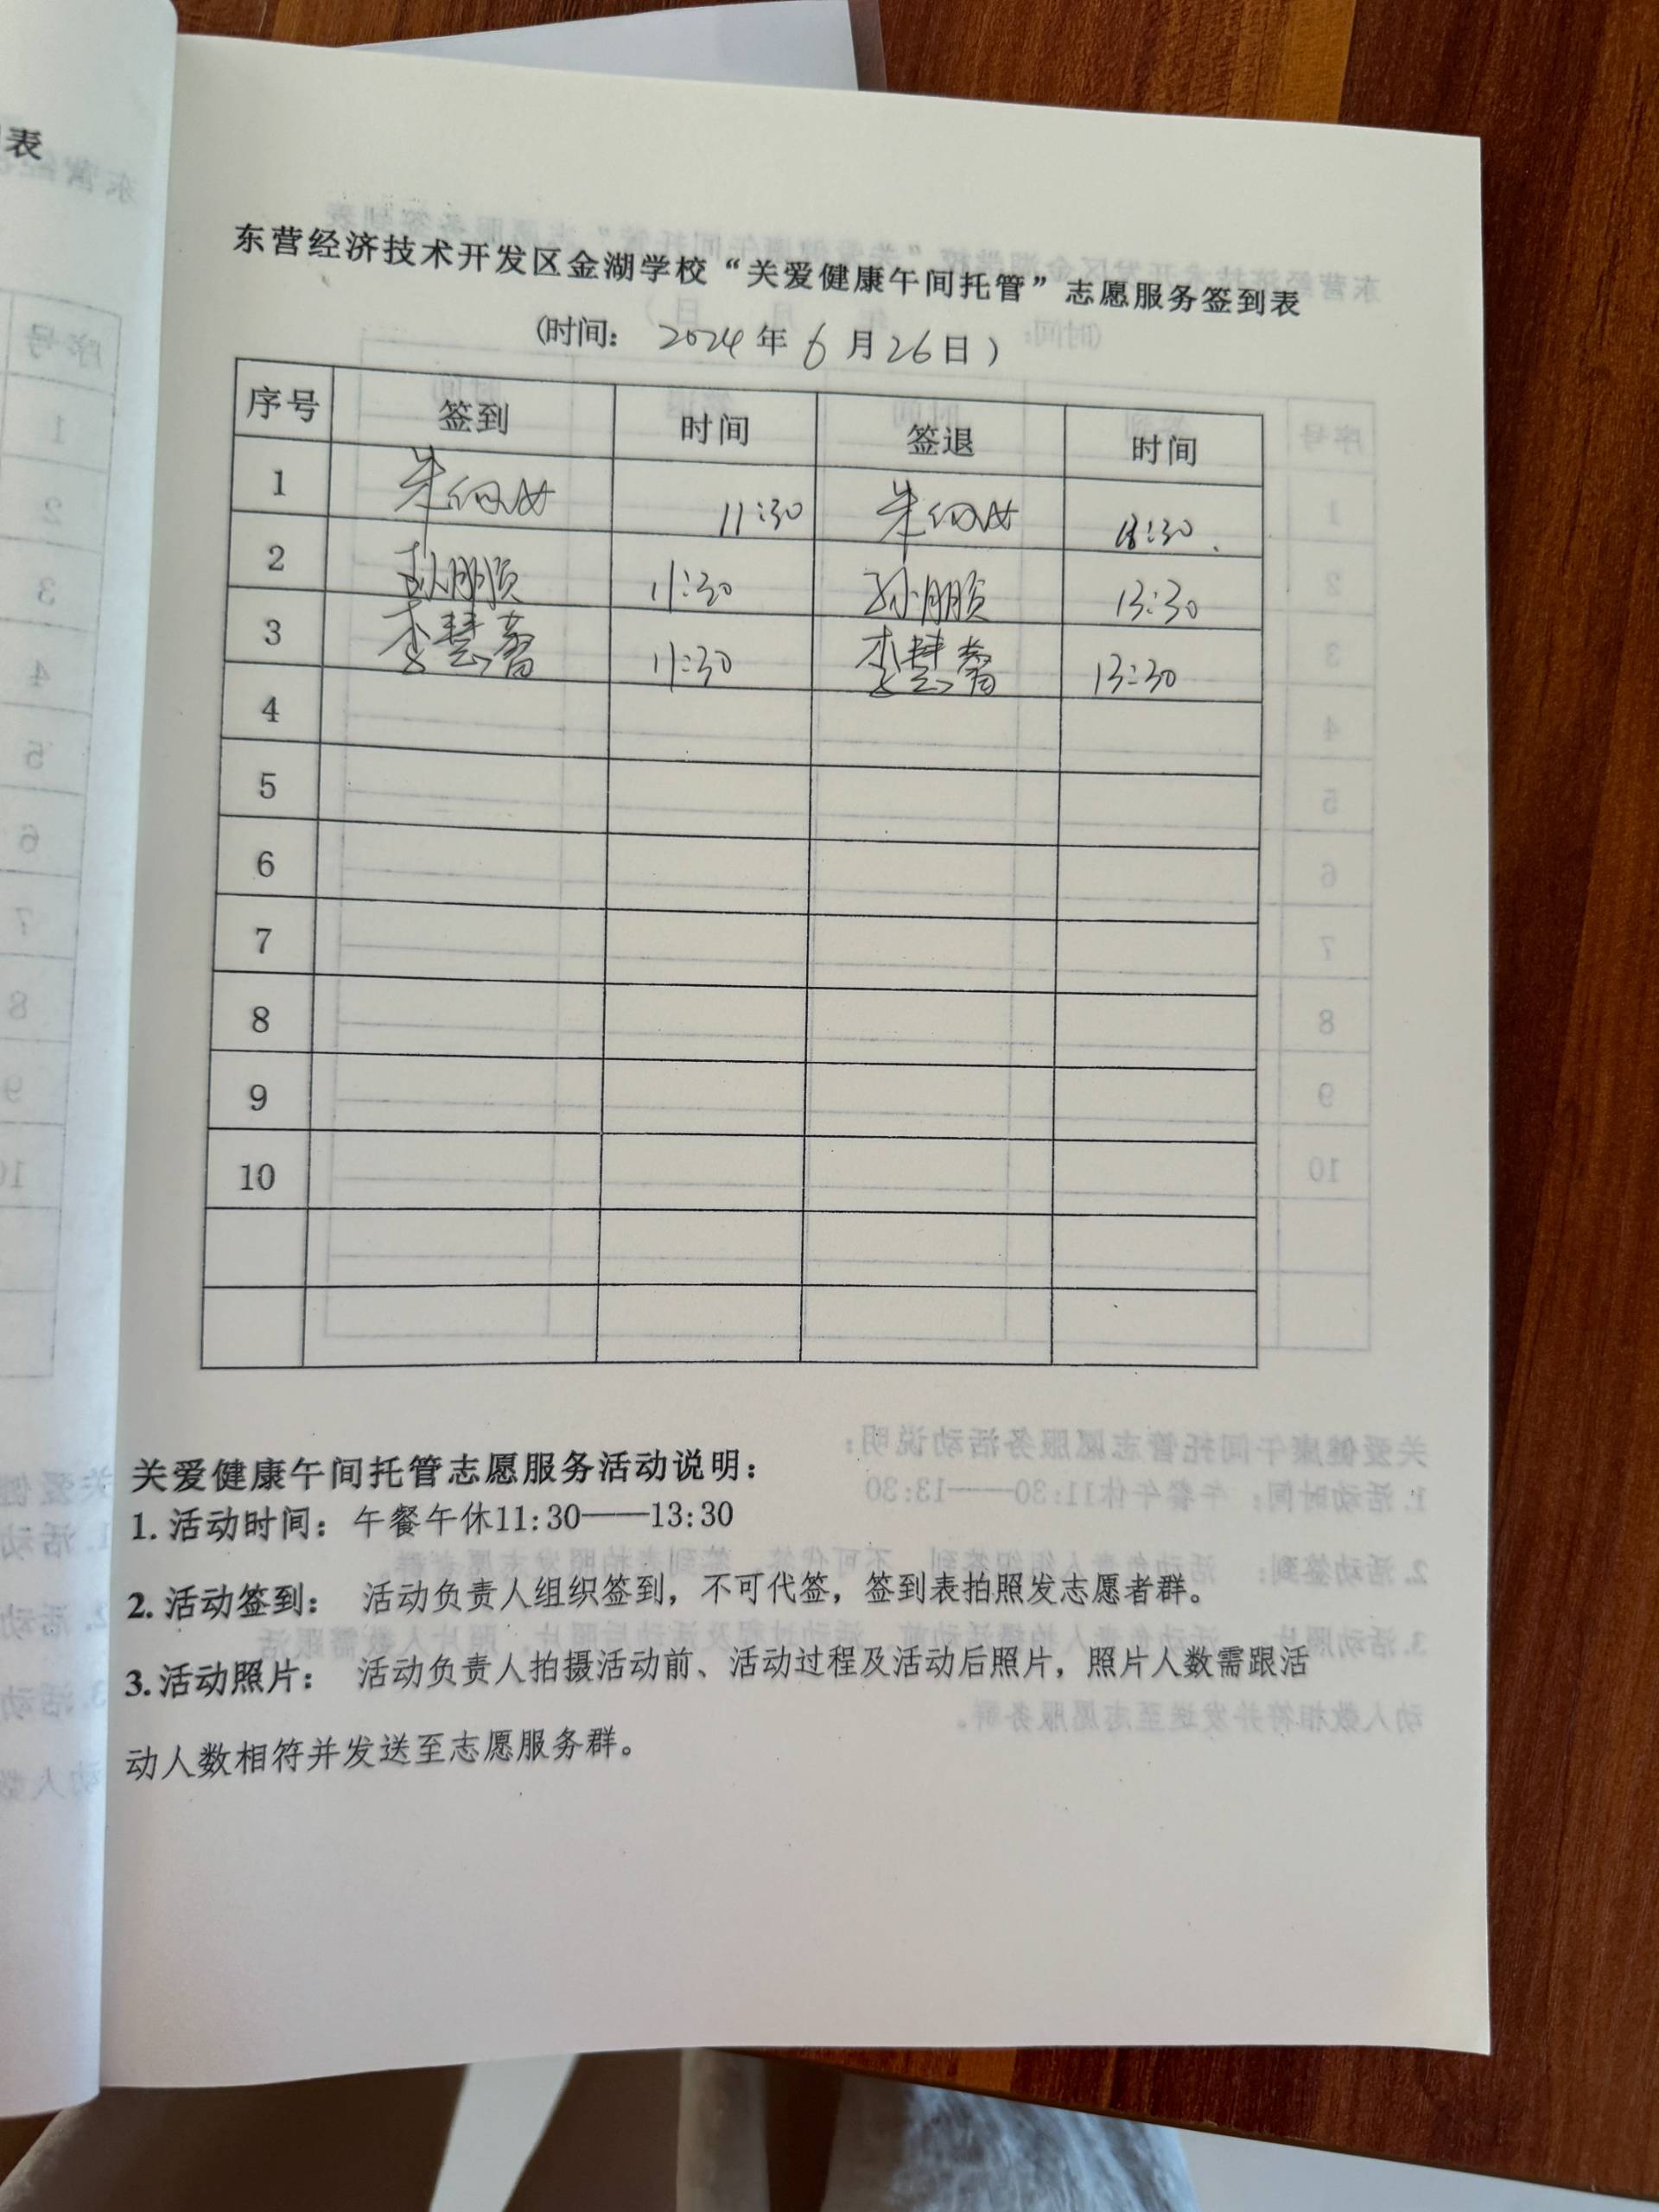 表
东营经济技术开发区金湖学校“关爱健康午间托管”志愿服务签到表
(时间： 2024年6月26日）
序号 签到 时间 签退 时间
1 朱 11:30 朱 13:30
2 孙朋顺 11:30 孙朋顺 13:30
3 李慧馨 11:30 李慧馨 13:30
4
5
6
7
8
9
10
关爱健康午间托管志愿服务活动说明：
1. 活动时间： 午餐午休11:30——13:30
2. 活动签到： 活动负责人组织签到，不可代签，签到表拍照发志愿者群。
3. 活动照片： 活动负责人拍摄活动前、活动过程及活动后照片，照片人数需跟活
动人数相符并发送至志愿服务群。